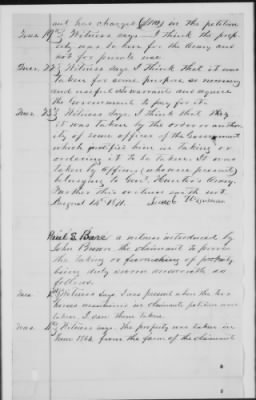 ant has charged ($100) in the petition
Ques. 19th Witness says - I think the prop-
erty was taken for the Army and
not for private use
Ques. 22d Witness says I think that it was
taken for some purpose so necessary
and useful to warrant and require
the Government to pay for it.
Ques. 23d Witness says I think that they
it was taken by the order or author-
ity of some officer of the Government
which justified him in taking or
ordering it to be taken. It was
taken by Officers (who were present)
belonging to Gen. Hunter's Army.
Further this witness saith not
August 14th 1871.
a witness introduced by
John Brown the claimant to prove
the taking or furnishing of property
being duly sworn answereth as
follows.
Ques. 1st Witness says I was present when the two
horses mentioned in claimants petition were
taken. I saw them taken.
Ques. 4th Witness says. The property was taken in
June 1864 from the farm of the claimant